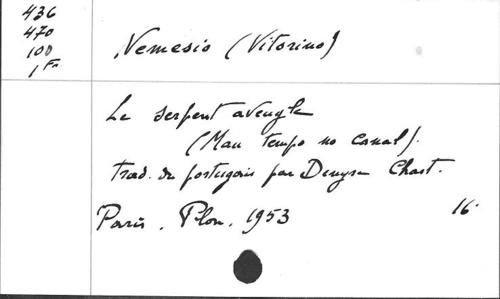 436
470
100
1 Fr.
Nemesio (Vitorino)
Le serpent aveugle
(Mau tempo no canal).
trad. du portugais par Denyse Chast.
Paris, Plon, 1953
16.